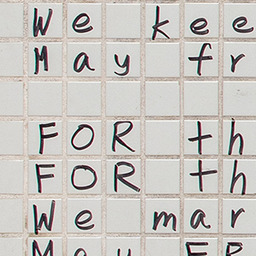 We kee
May fr
FOR th
FOR th
We mar
May FR